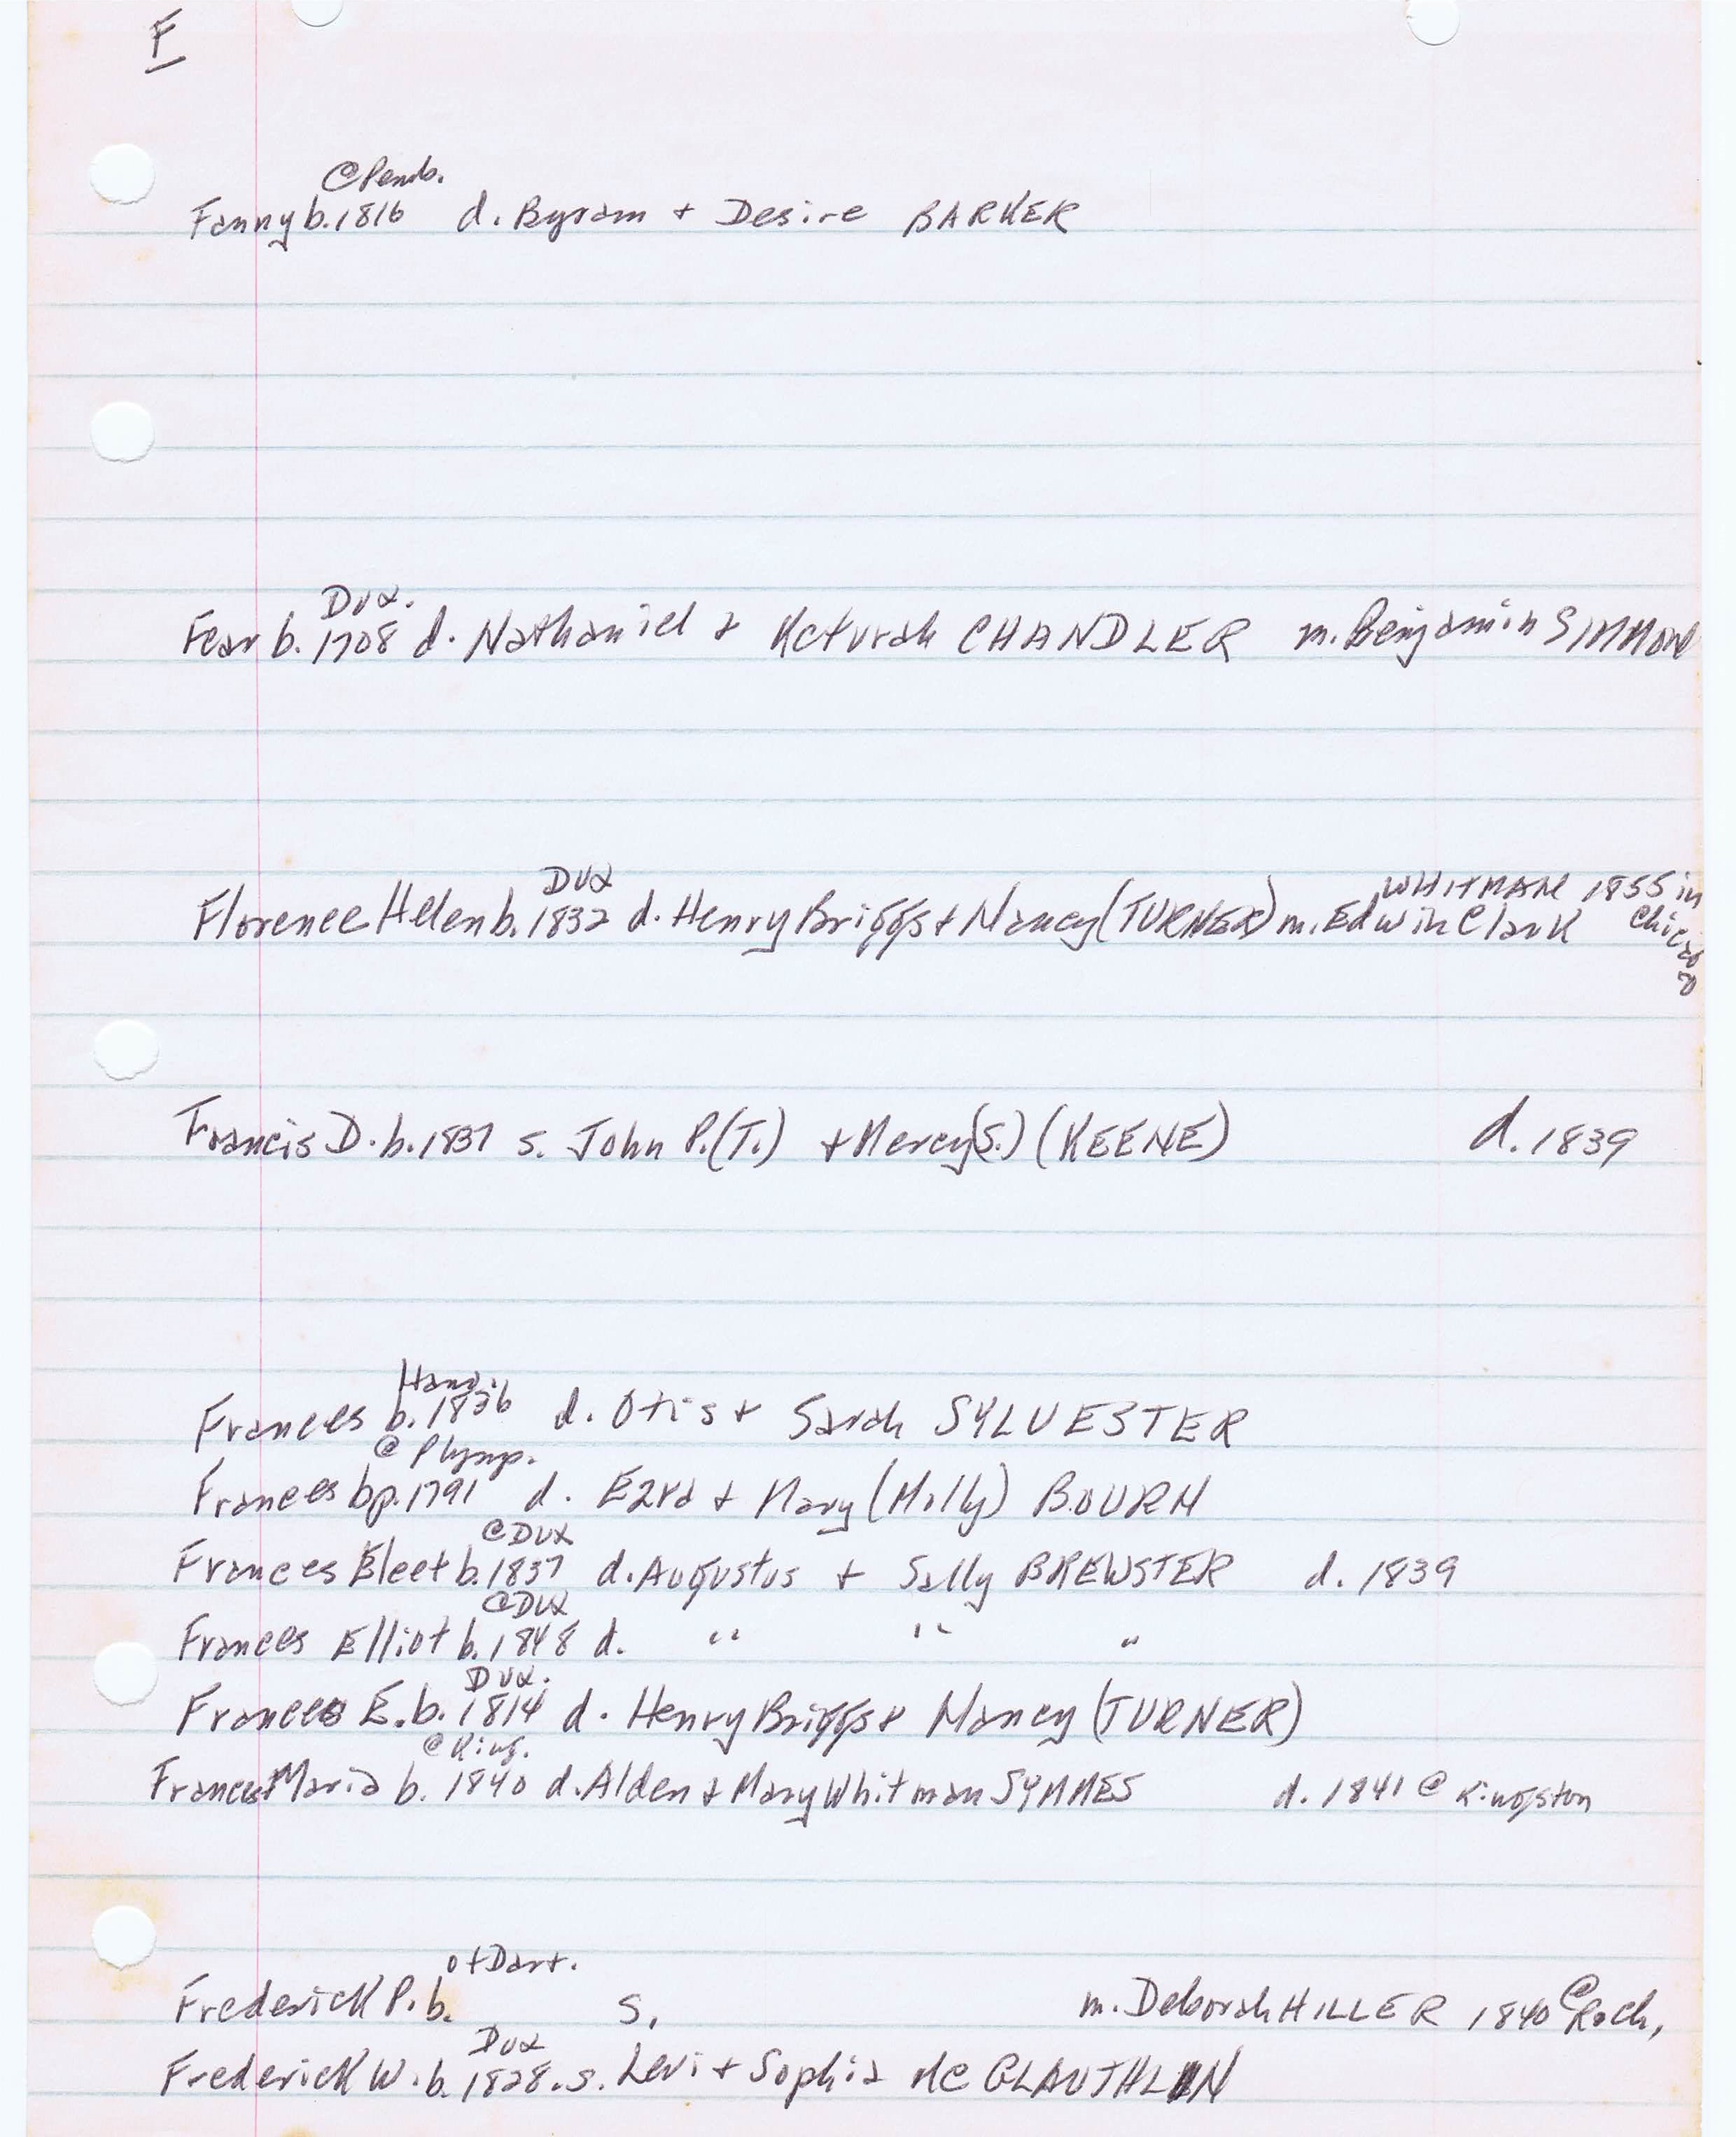 F
@Pemb.
Fanny b. 1816 d. Byram + Desire BARKER
Dux.
Fear b. 1708 d. Nathaniel + Keturah CHANDLER m. Benjamin SIMMON
Dux WHITMAN 1855 in
Florence Helen b. 1832 d. Henry Briggs + Nancy (TURNER) m. Edwin Clark Chicago
Francis D. b. 1837 s. John P. (T.) + Mercy (S.) (KEENE) d. 1839
Hano.
Frances b. 1836 d. Otis + Sarah SYLVESTER
@ Plymp.
Frances bp. 1791 d. Ezra + Mary (Molly) BOURN
@DUX
Frances Eleet b. 1837 d. Augustus + Sally BREWSTER d. 1839
@DUX
Frances Elliot b. 1848 d. " " "
Dux.
Frances E. b. 1814 d. Henry Briggs + Nancy (TURNER)
@ King.
Frances Maria b. 1840 d. Alden + Mary Whitman SYMMES d. 1841 @ Kingston
of Dart.
Frederick P. b. s. m. Deborah HILLER 1840 @ Roch,
Dux
Frederick W. b. 1828. s. Levi + Sophia McGLAUTHLIN